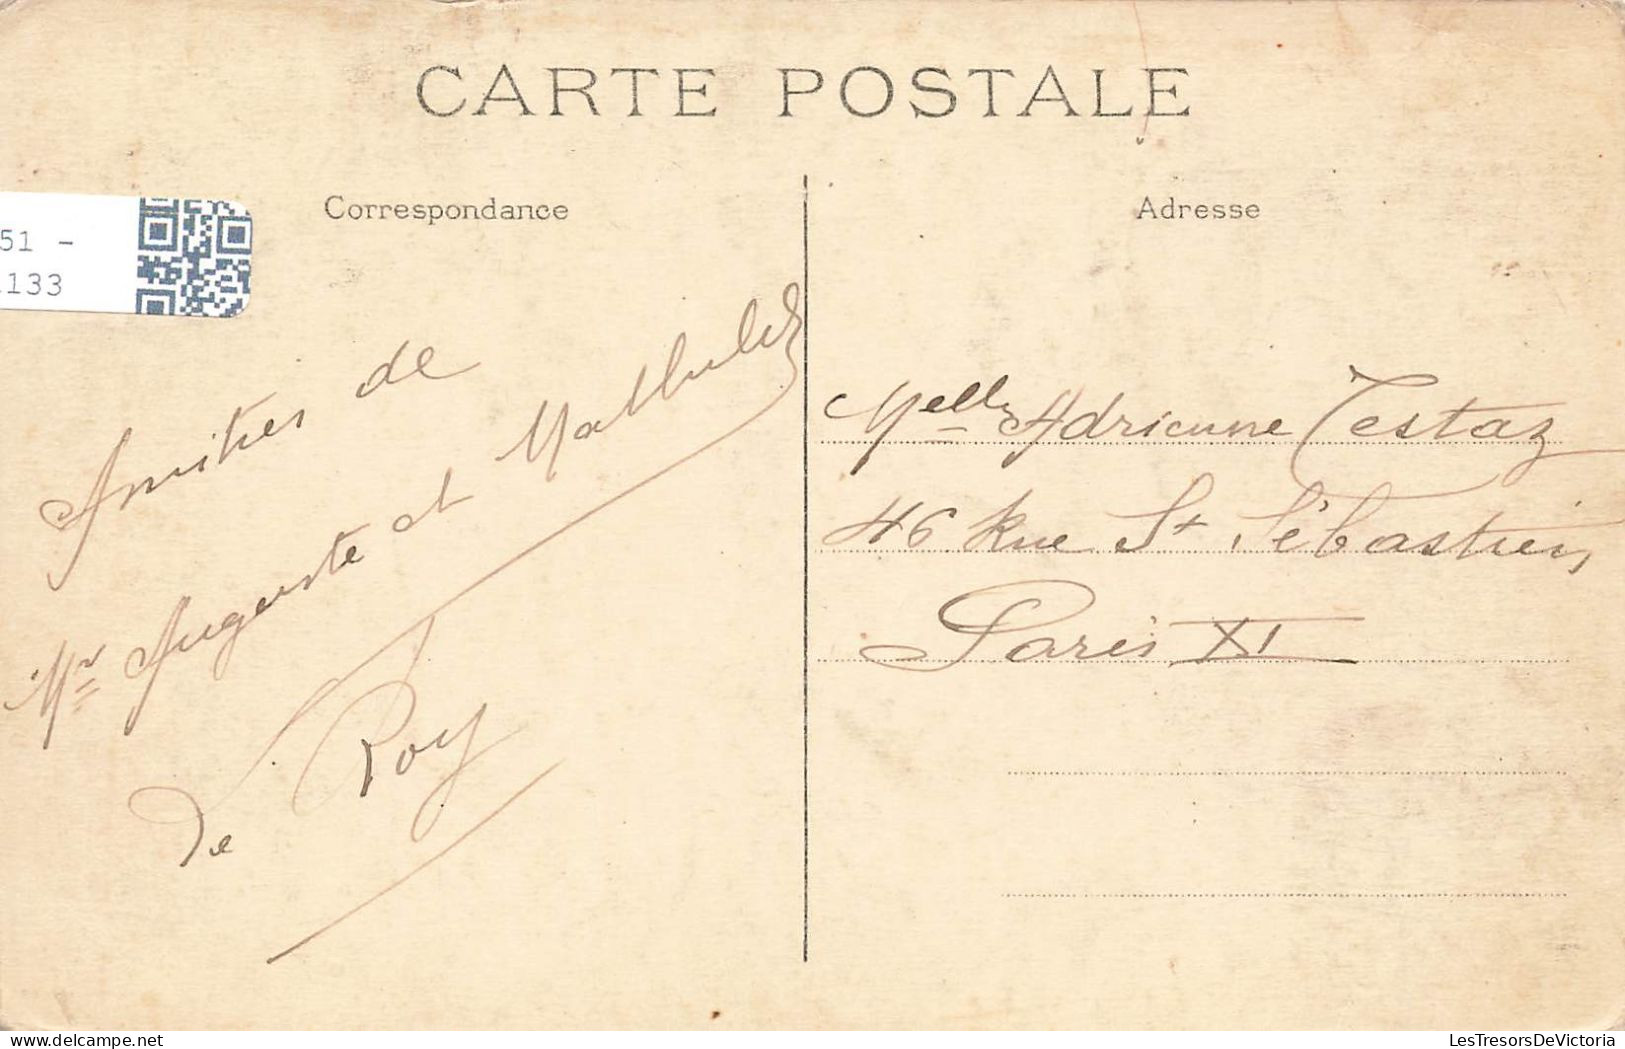 CARTE POSTALE
Correspondance
Adresse
51 -
133
Amitiés de
Mr Auguste et Mathilde
de Roy
Melle Adrienne Testaz
46 Rue St Sébastien
Paris XI
LesTresorsDeVictoria